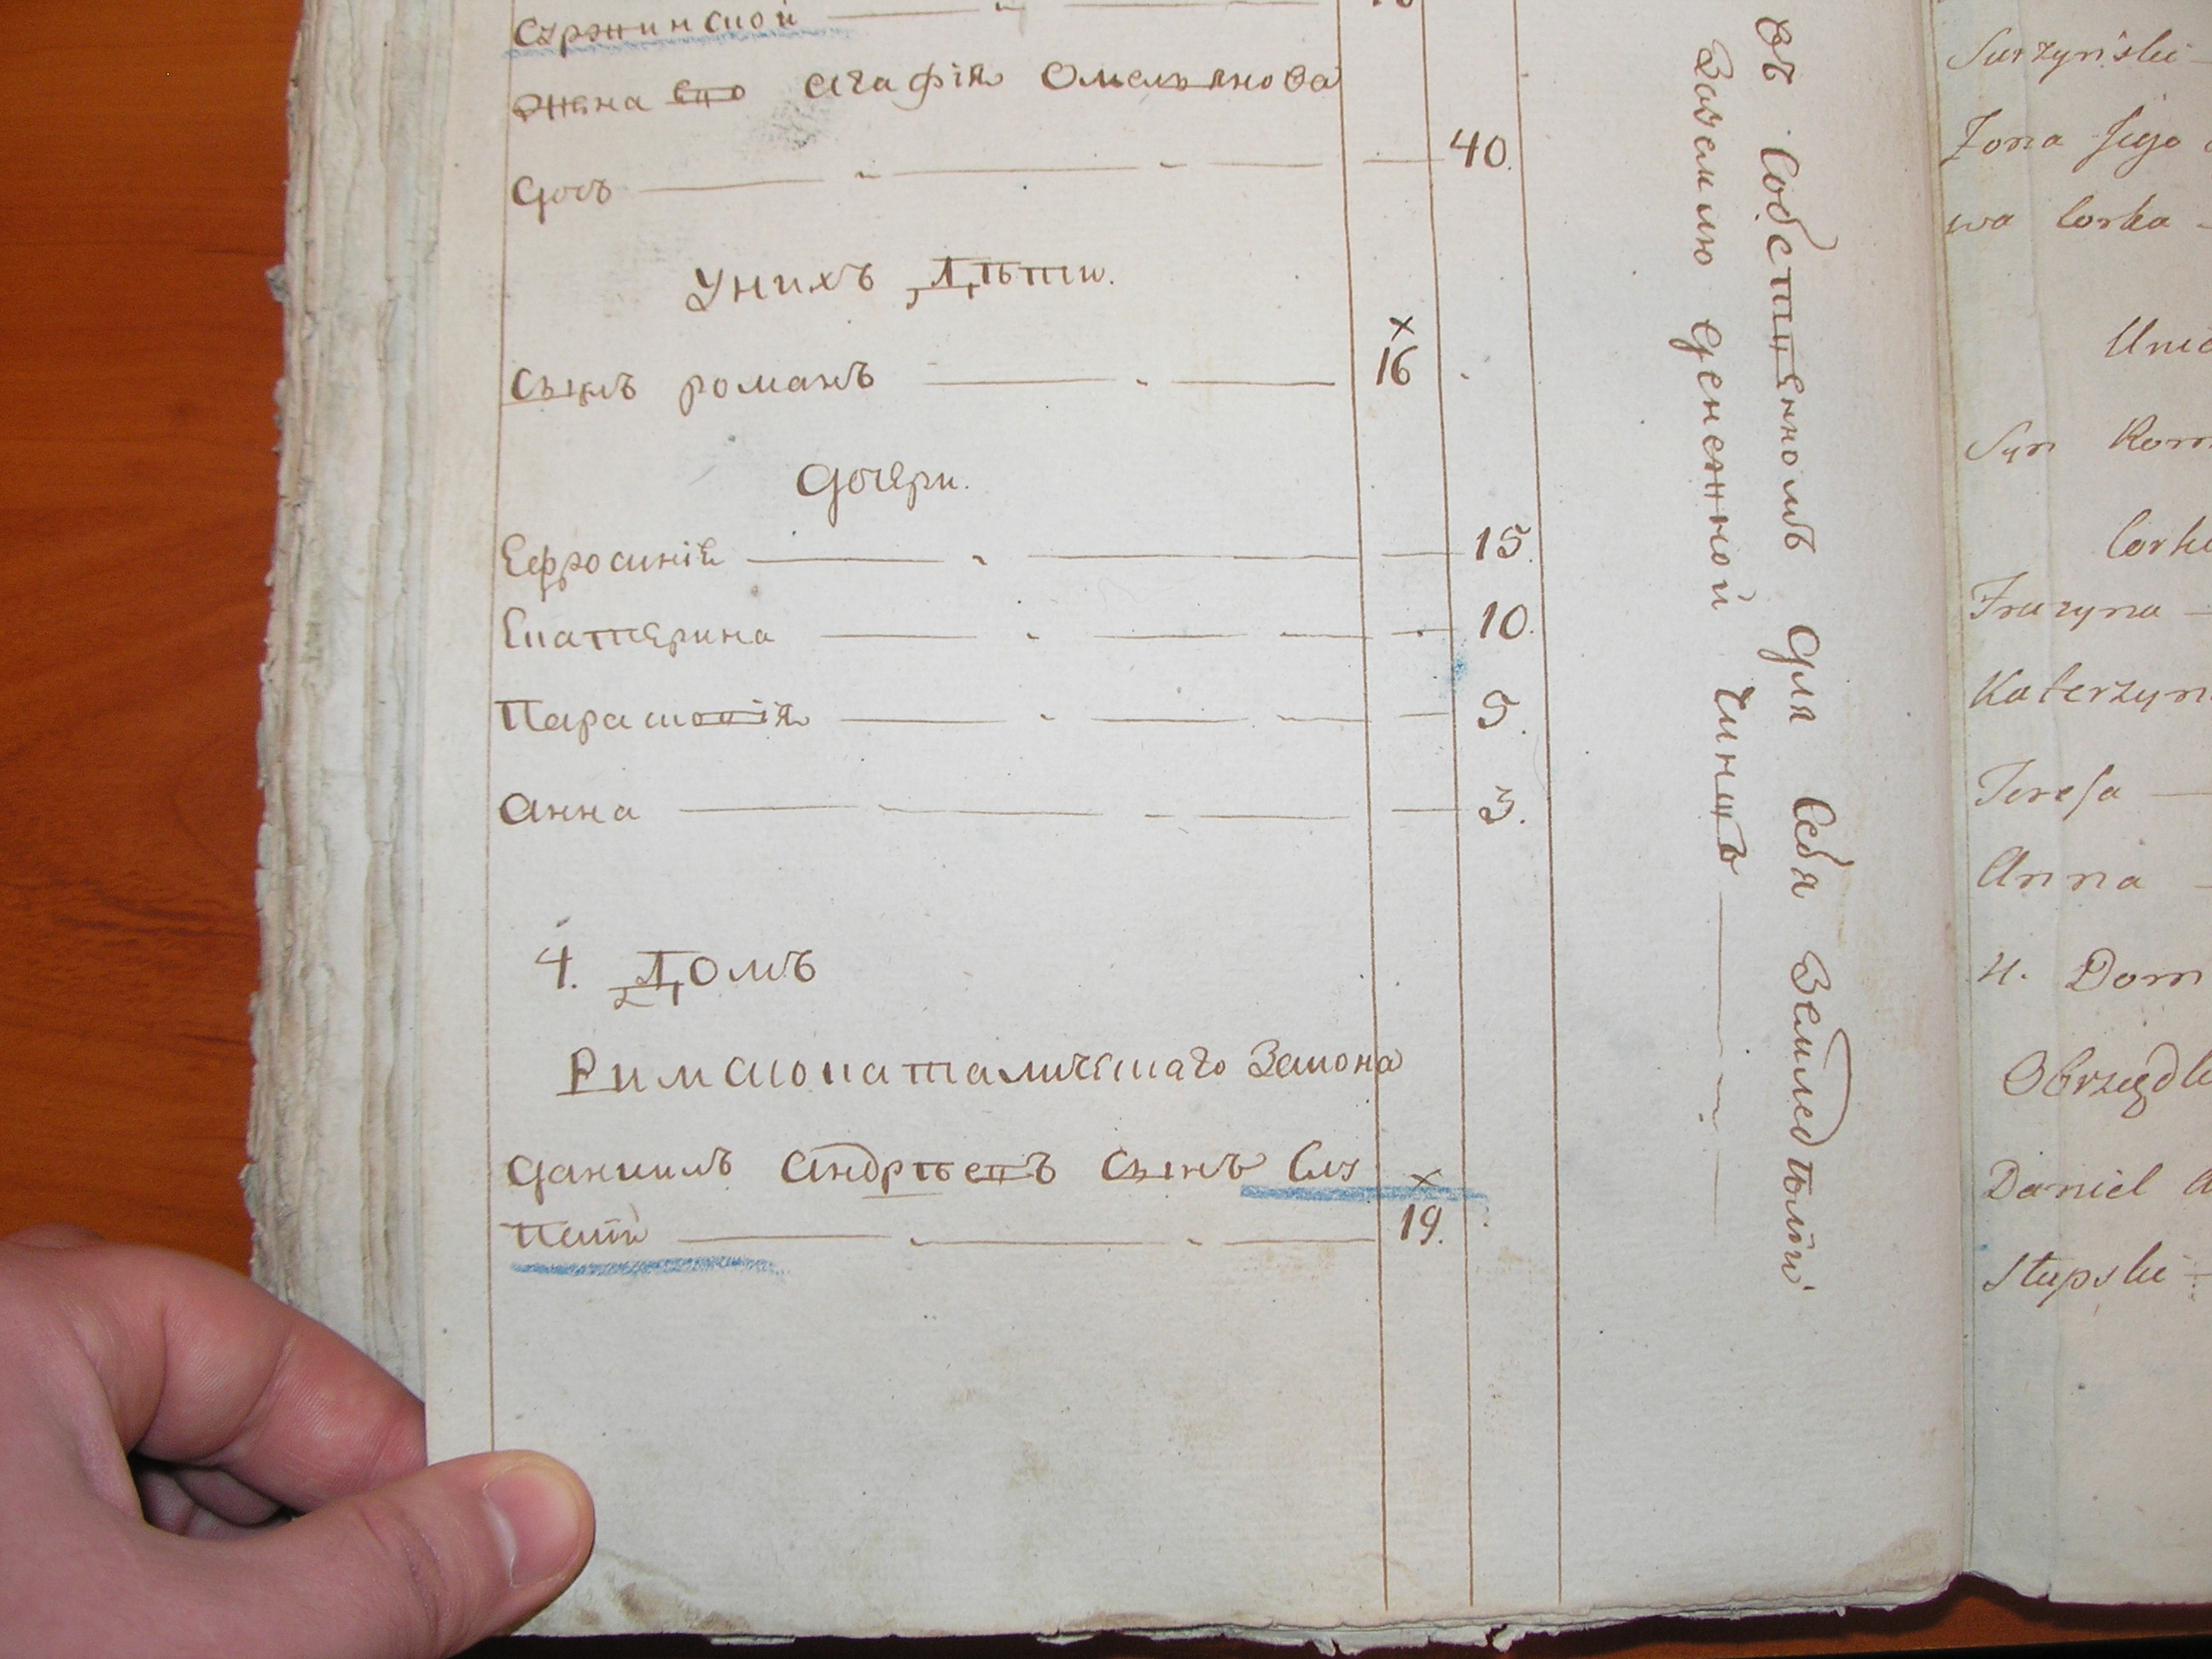 Сужинской
Жена его Агафія Омельянова
дочь 40.
У нихъ Дѣти.
Сынъ романъ 16
дочери.
Ефросинія 15.
Екатерина 10.
Параскевія 5.
Анна 3.
4. Домъ
Римскокатолическаго Закона
даниилъ Андрѣевъ Сынъ Сту
пскій 19.
въ Собственномъ для Себя Земледѣлїи
За землю денежной Чиншъ
Surzyński
Żona Jego
wa Corka
Syn Rom
Cork
Fruzyna
Katerzyn
Teresa
Anna
4. Dom
Obrządk
Daniel A
Stupski